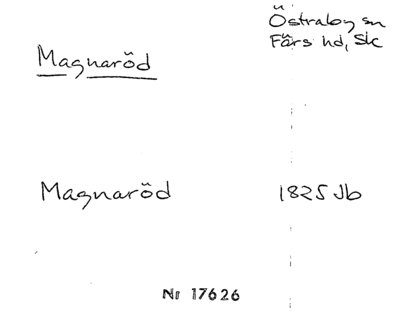 Östraby sn
Färs hd, Sk
Magnaröd
Magnaröd 1825 Jb
Nr 17626